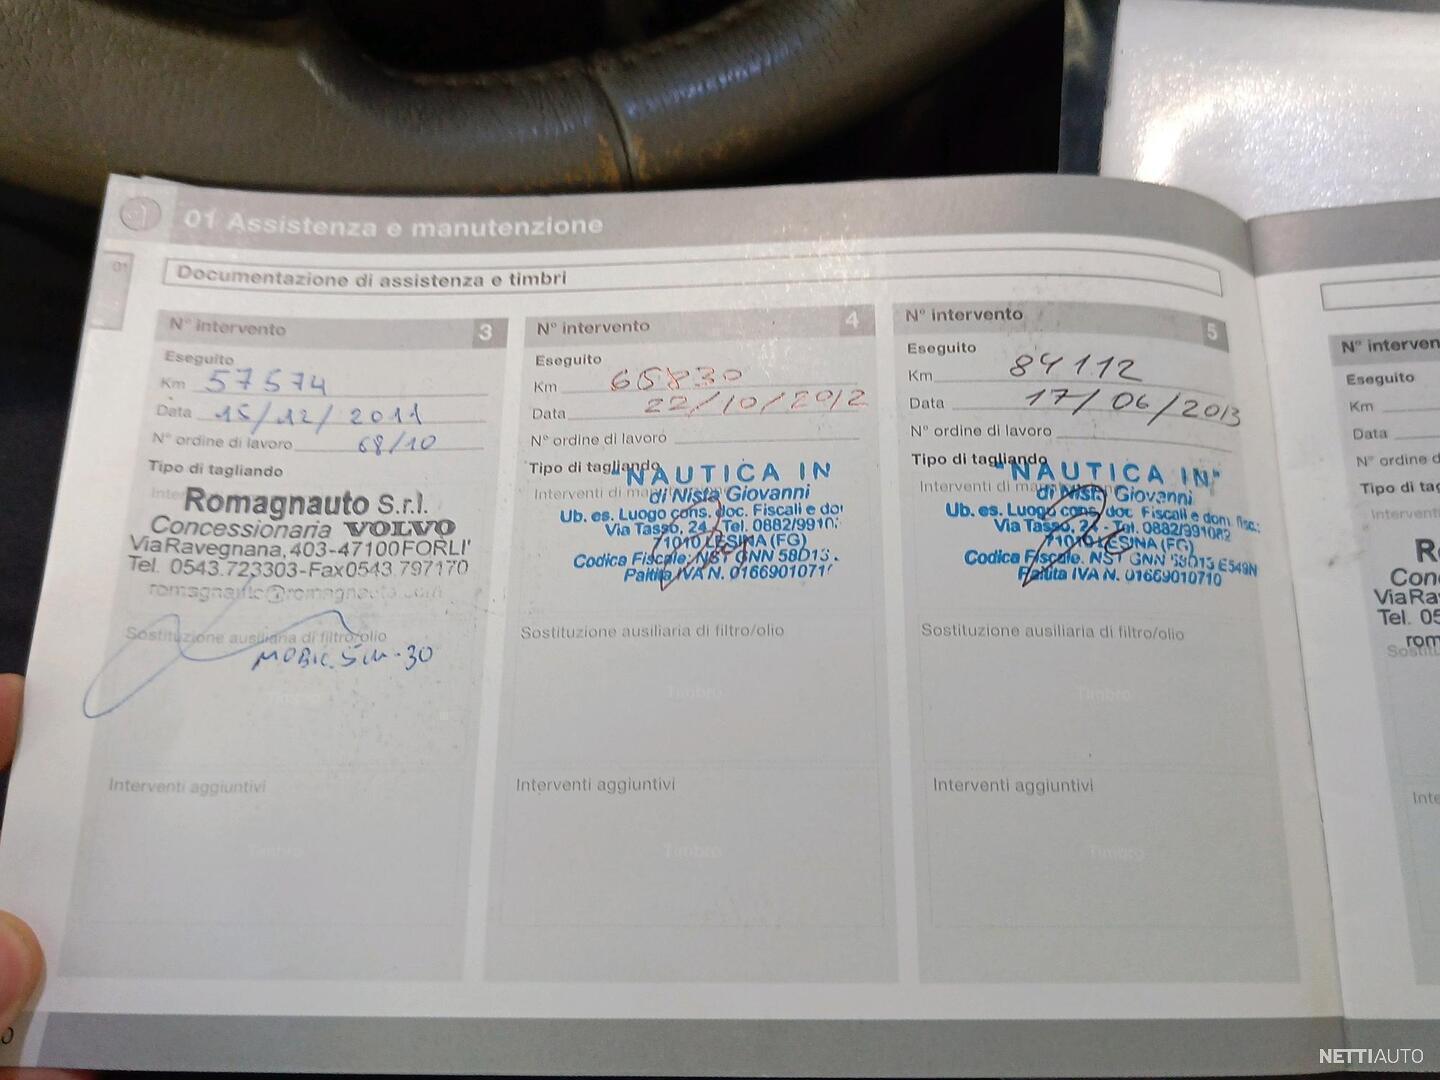 01 Assistenza e manutenzione
01
Documentazione di assistenza e timbri
N° intervento 3
Eseguito
Km 57574
Data 15/12/2011
N° ordine di lavoro 68/10
Tipo di tagliando
Romagnauto S.r.l.
Concessionaria VOLVO
Via Ravegnana, 403-47100 FORLI'
Tel. 0543.723303-Fax 0543.797170
romagnauto@romagnauto.com
Sostituzione ausiliaria di filtro/olio
Timbro
Interventi aggiuntivi
Timbro
N° intervento 4
Eseguito
Km 65830
Data 22/10/2012
N° ordine di lavoro
Tipo di tagliando
"NAUTICA IN
Interventi di
di Nista Giovanni
Ub. es. Luogo cons. doc. Fiscali e do
Via Tasso, 24 - Tel. 0882/9910
71010 LESINA (FG)
Codica Fiscale: NST GNN 58D13
Partita IVA N. 0166901071
Sostituzione ausiliaria di filtro/olio
Timbro
Interventi aggiuntivi
Timbro
N° intervento 5
Eseguito
Km 84112
Data 17/06/2013
N° ordine di lavoro
Tipo di tagliando
"NAUTICA IN"
Interventi di
di Nista Giovanni
Ub. es. Luogo cons. doc. Fiscali e dom. fisc.:
Via Tasso, 24 - Tel. 0882/991082
71010 LESINA (FG)
Codica Fiscale: NST GNN 58D13 E549N
Partita IVA N. 01669010710
Sostituzione ausiliaria di filtro/olio
Timbro
Interventi aggiuntivi
Timbro
N° interven
Eseguito
Km
Data
N° ordine d
Tipo di tag
Intervent
Ro
Con
Via Ra
Tel. 05
rom
Sostitu
Inte
0
NETTIAUTO